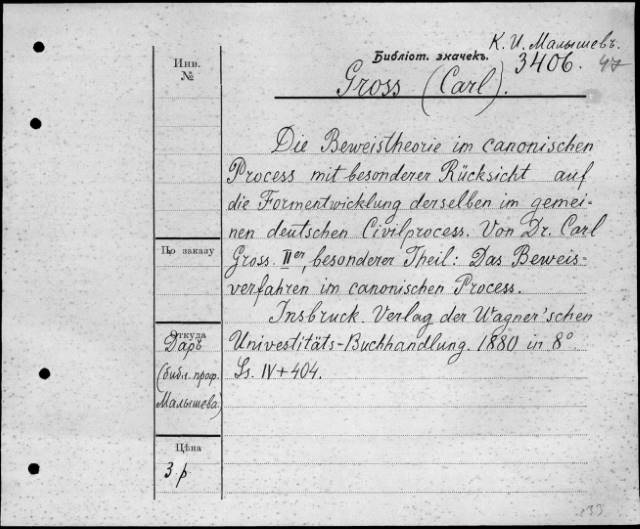 К. И. Малышевъ.
Инв.
№
Библіот. значекъ.
3406. 47
Gross (Carl).
Die Beweistheorie im canonischen
Process mit besonderer Rücksicht auf
die Formentwicklung derselben im gemei-
nen deutschen Civilprocess. Von Dr. Carl
По заказу
Gross. IIer, besonderer Theil: Das Beweis-
verfahren im canonischen Process.
Insbruck. Verlag der Wagner'schen
Откуда
Даръ
Univestitäts-Buchhandlung. 1880 in 8°
(библ. проф.
Ss. IV+404.
Малышева)
Цѣна
3 р